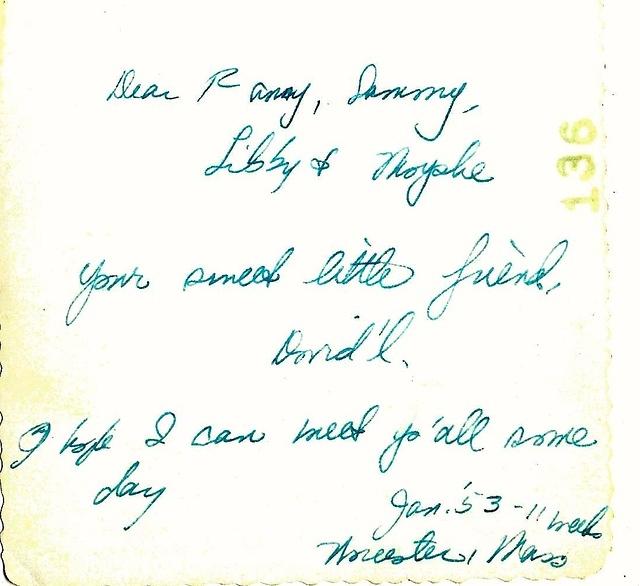 Dear Fanny, Sammy,
Libby & Moyshe
136
Your sweet little friend,
David'l.
I hope I can meet yo'all some
day
Jan. '53 - 11 weeks
Worcester, Mass